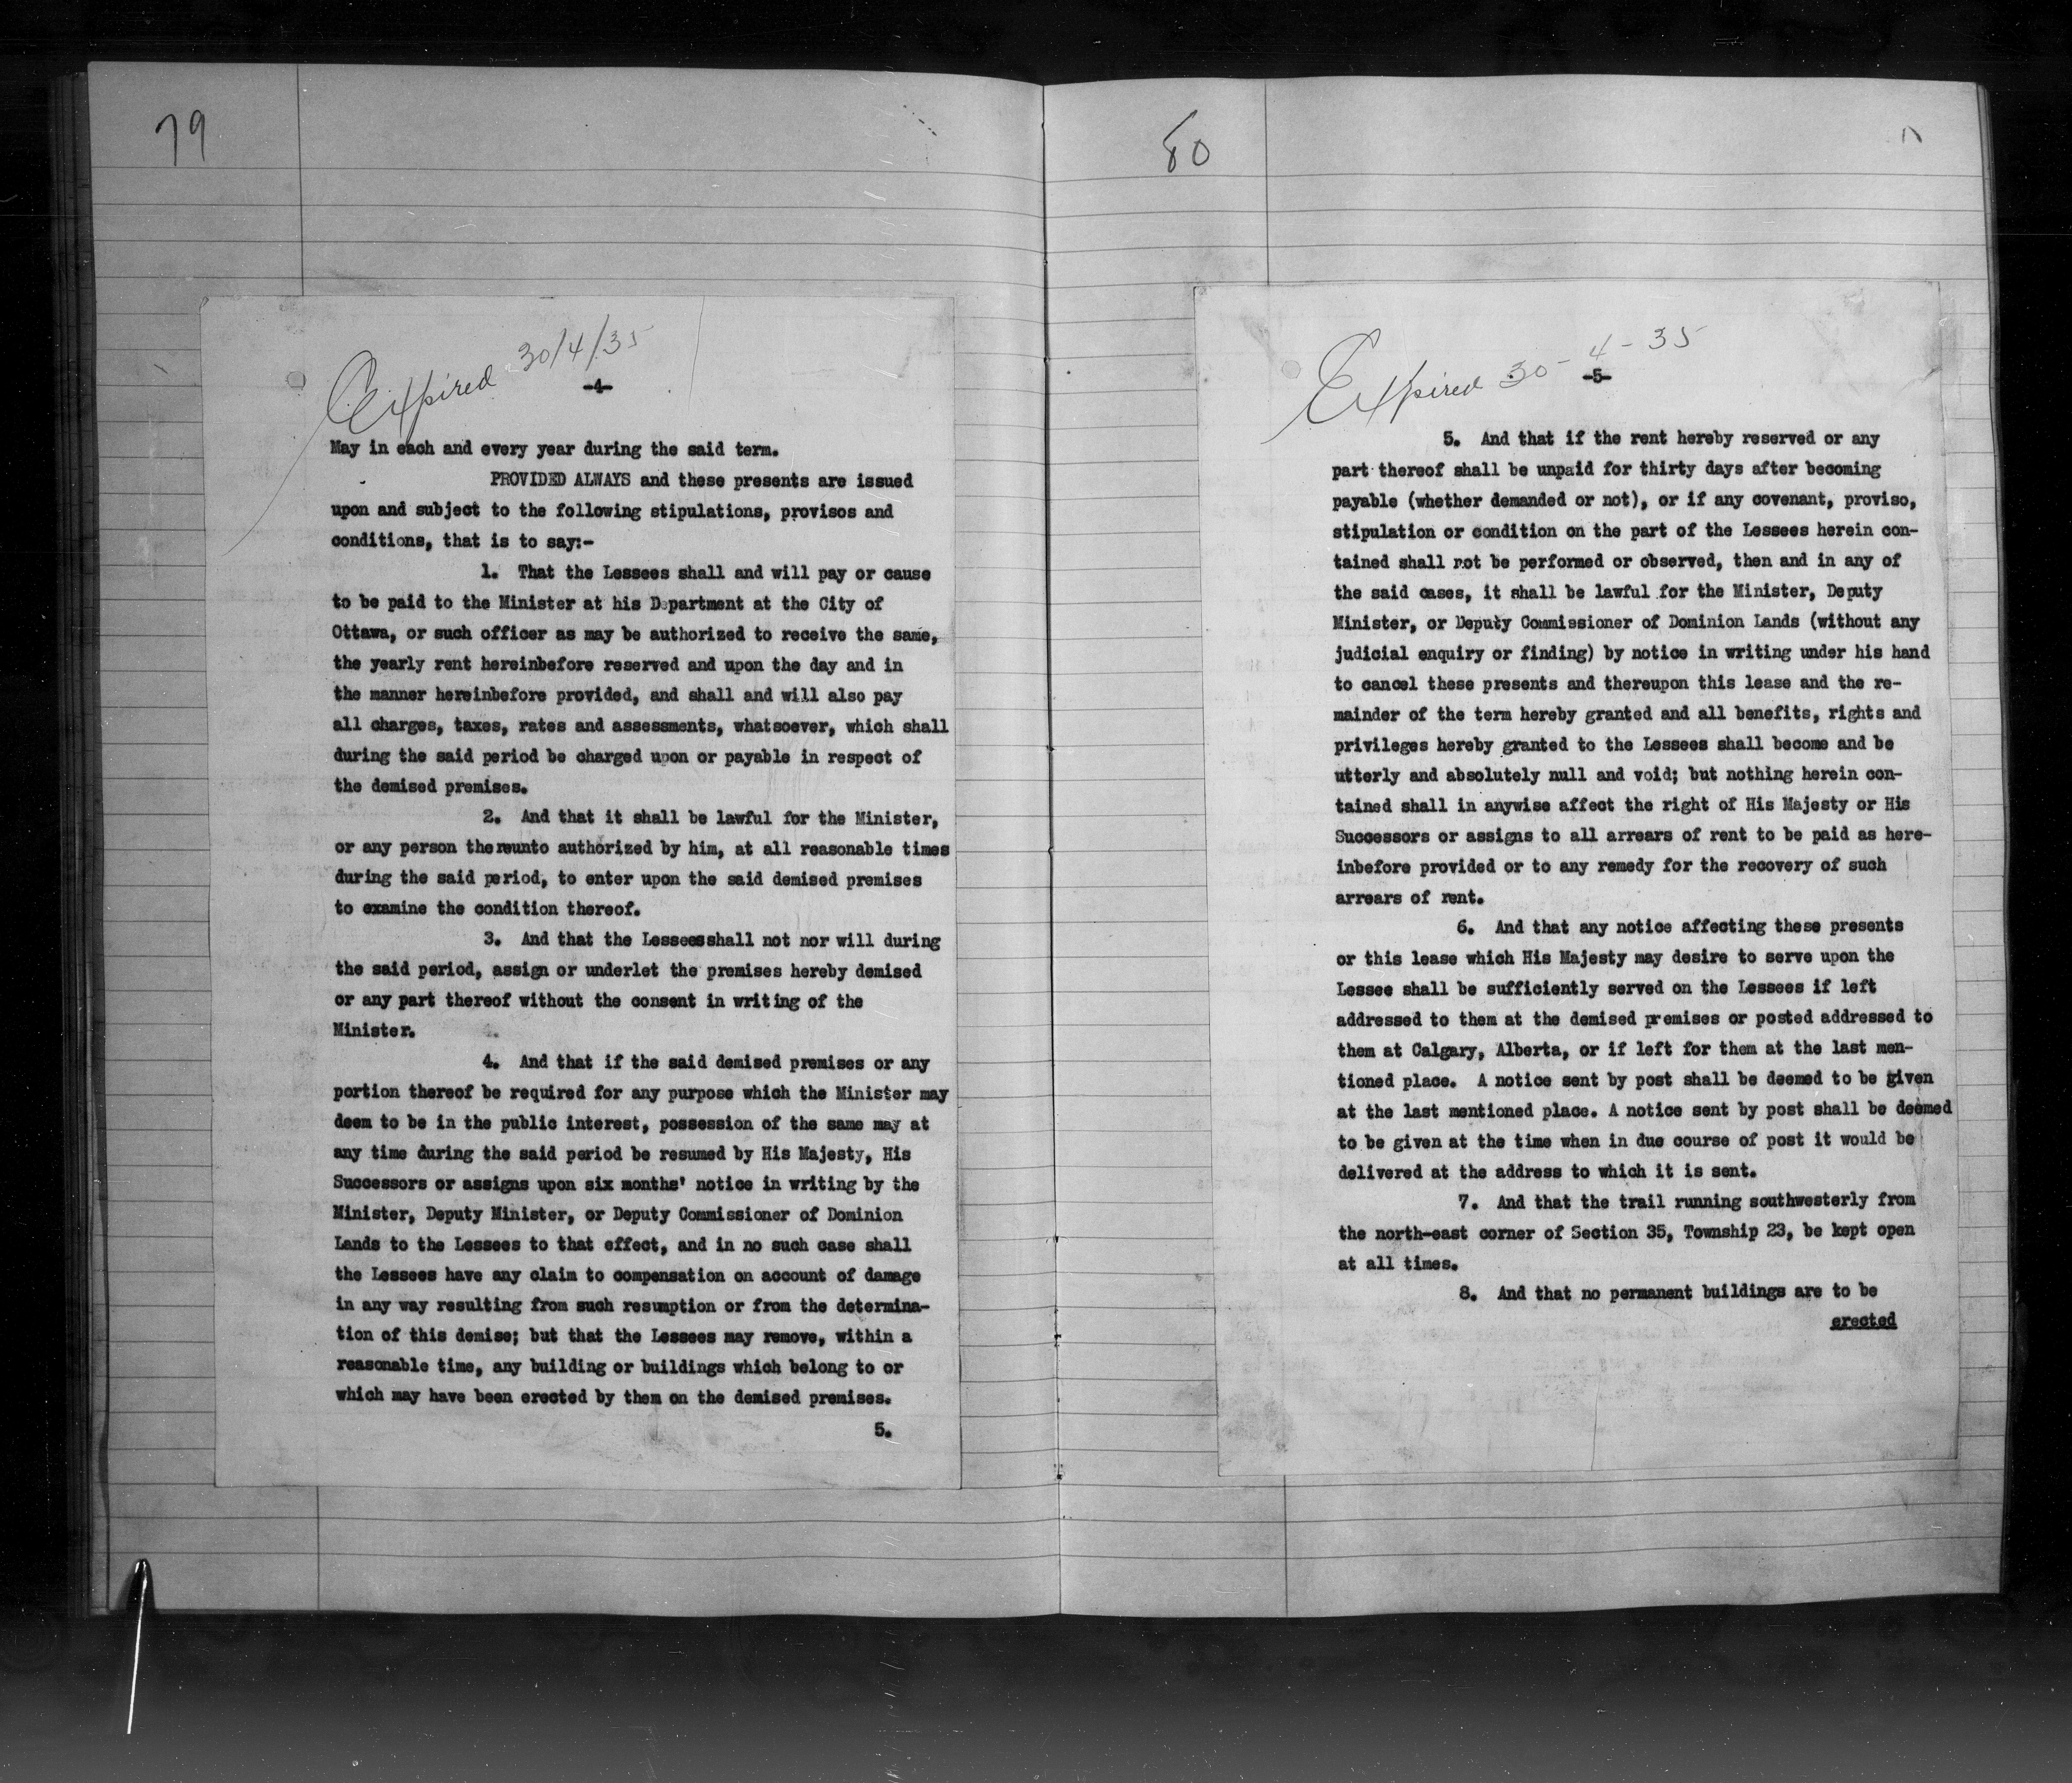 79
Expired 30/4/35
-4-
May in each and every year during the said term.
PROVIDED ALWAYS and these presents are issued
upon and subject to the following stipulations, provisos and
conditions, that is to say:-
1. That the Lessees shall and will pay or cause
to be paid to the Minister at his Department at the City of
Ottawa, or such officer as may be authorized to receive the same,
the yearly rent hereinbefore reserved and upon the day and in
the manner hereinbefore provided, and shall and will also pay
all charges, taxes, rates and assessments, whatsoever, which shall
during the said period be charged upon or payable in respect of
the demised premises.
2. And that it shall be lawful for the Minister,
or any person thereunto authorized by him, at all reasonable times
during the said period, to enter upon the said demised premises
to examine the condition thereof.
3. And that the Lessees shall not nor will during
the said period, assign or underlet the premises hereby demised
or any part thereof without the consent in writing of the
Minister.
4. And that if the said demised premises or any
portion thereof be required for any purpose which the Minister may
deem to be in the public interest, possession of the same may at
any time during the said period be resumed by His Majesty, His
Successors or assigns upon six months' notice in writing by the
Minister, Deputy Minister, or Deputy Commissioner of Dominion
Lands to the Lessees to that effect, and in no such case shall
the Lessees have any claim to compensation on account of damage
in any way resulting from such resumption or from the determina-
tion of this demise; but that the Lessees may remove, within a
reasonable time, any building or buildings which belong to or
which may have been erected by them on the demised premises.
5.
80
Expired 30-4-35
-5-
5. And that if the rent hereby reserved or any
part thereof shall be unpaid for thirty days after becoming
payable (whether demanded or not), or if any covenant, proviso,
stipulation or condition on the part of the Lessees herein con-
tained shall not be performed or observed, then and in any of
the said cases, it shall be lawful for the Minister, Deputy
Minister, or Deputy Commissioner of Dominion Lands (without any
judicial enquiry or finding) by notice in writing under his hand
to cancel these presents and thereupon this lease and the re-
mainder of the term hereby granted and all benefits, rights and
privileges hereby granted to the Lessees shall become and be
utterly and absolutely null and void; but nothing herein con-
tained shall in anywise affect the right of His Majesty or His
Successors or assigns to all arrears of rent to be paid as here-
inbefore provided or to any remedy for the recovery of such
arrears of rent.
6. And that any notice affecting these presents
or this lease which His Majesty may desire to serve upon the
Lessee shall be sufficiently served on the Lessees if left
addressed to them at the demised premises or posted addressed to
them at Calgary, Alberta, or if left for them at the last men-
tioned place. A notice sent by post shall be deemed to be given
at the last mentioned place. A notice sent by post shall be deemed
to be given at the time when in due course of post it would be
delivered at the address to which it is sent.
7. And that the trail running southwesterly from
the north-east corner of Section 35, Township 23, be kept open
at all times.
8. And that no permanent buildings are to be
erected